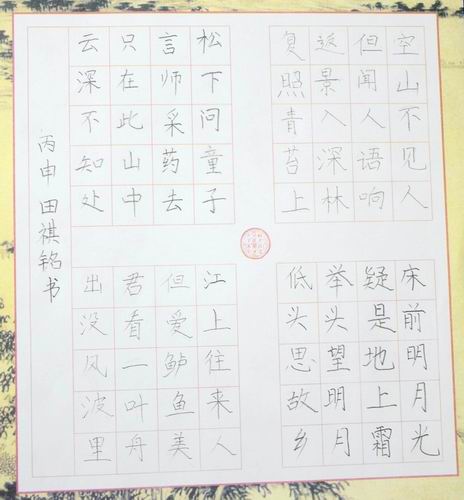 空山不见人
但闻人语响
返景入深林
复照青苔上
松下问童子
言师采药去
只在此山中
云深不知处
床前明月光
疑是地上霜
举头望明月
低头思故乡
江上往来人
但爱鲈鱼美
君看一叶舟
出没风波里
丙申田祺铭书